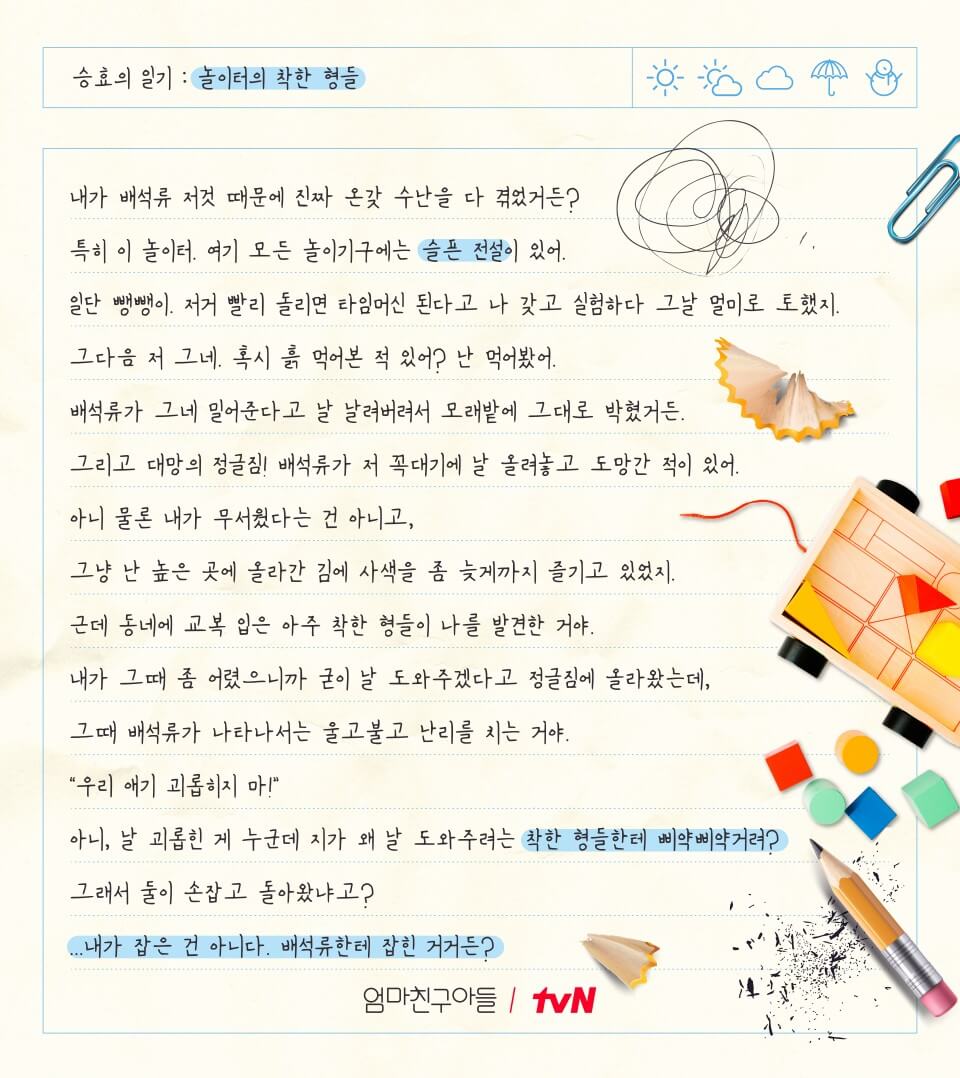 승효의 일기 : 놀이터의 착한 형들
내가 배석류 저것 때문에 진짜 온갖 수난을 다 겪었거든?
특히 이 놀이터. 여기 모든 놀이기구에는 슬픈 전설이 있어.
일단 뺑뺑이. 저거 빨리 돌리면 타임머신 된다고 나 갖고 실험하다 그날 멀미로 토했지.
그다음 저 그네. 혹시 흙 먹어본 적 있어? 난 먹어봤어.
배석류가 그네 밀어준다고 날 날려버려서 모래밭에 그대로 박혔거든.
그리고 대망의 정글짐! 배석류가 저 꼭대기에 날 올려놓고 도망간 적이 있어.
아니 물론 내가 무서웠다는 건 아니고,
그냥 난 높은 곳에 올라간 김에 사색을 좀 늦게까지 즐기고 있었지.
근데 동네에 교복 입은 아주 착한 형들이 나를 발견한 거야.
내가 그때 좀 어렸으니까 굳이 날 도와주겠다고 정글짐에 올라왔는데,
그때 배석류가 나타나서는 울고불고 난리를 치는 거야.
“우리 애기 괴롭히지 마!”
아니, 날 괴롭힌 게 누군데 지가 왜 날 도와주려는 착한 형들한테 삐약삐약거려?
그래서 둘이 손잡고 돌아왔냐고?
...내가 잡은 건 아니다. 배석류한테 잡힌 거거든?
엄마친구아들 | tvN